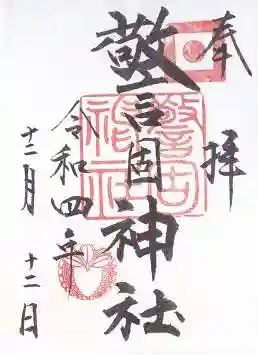 奉拝
警固神社
令和四年
十二月十二日